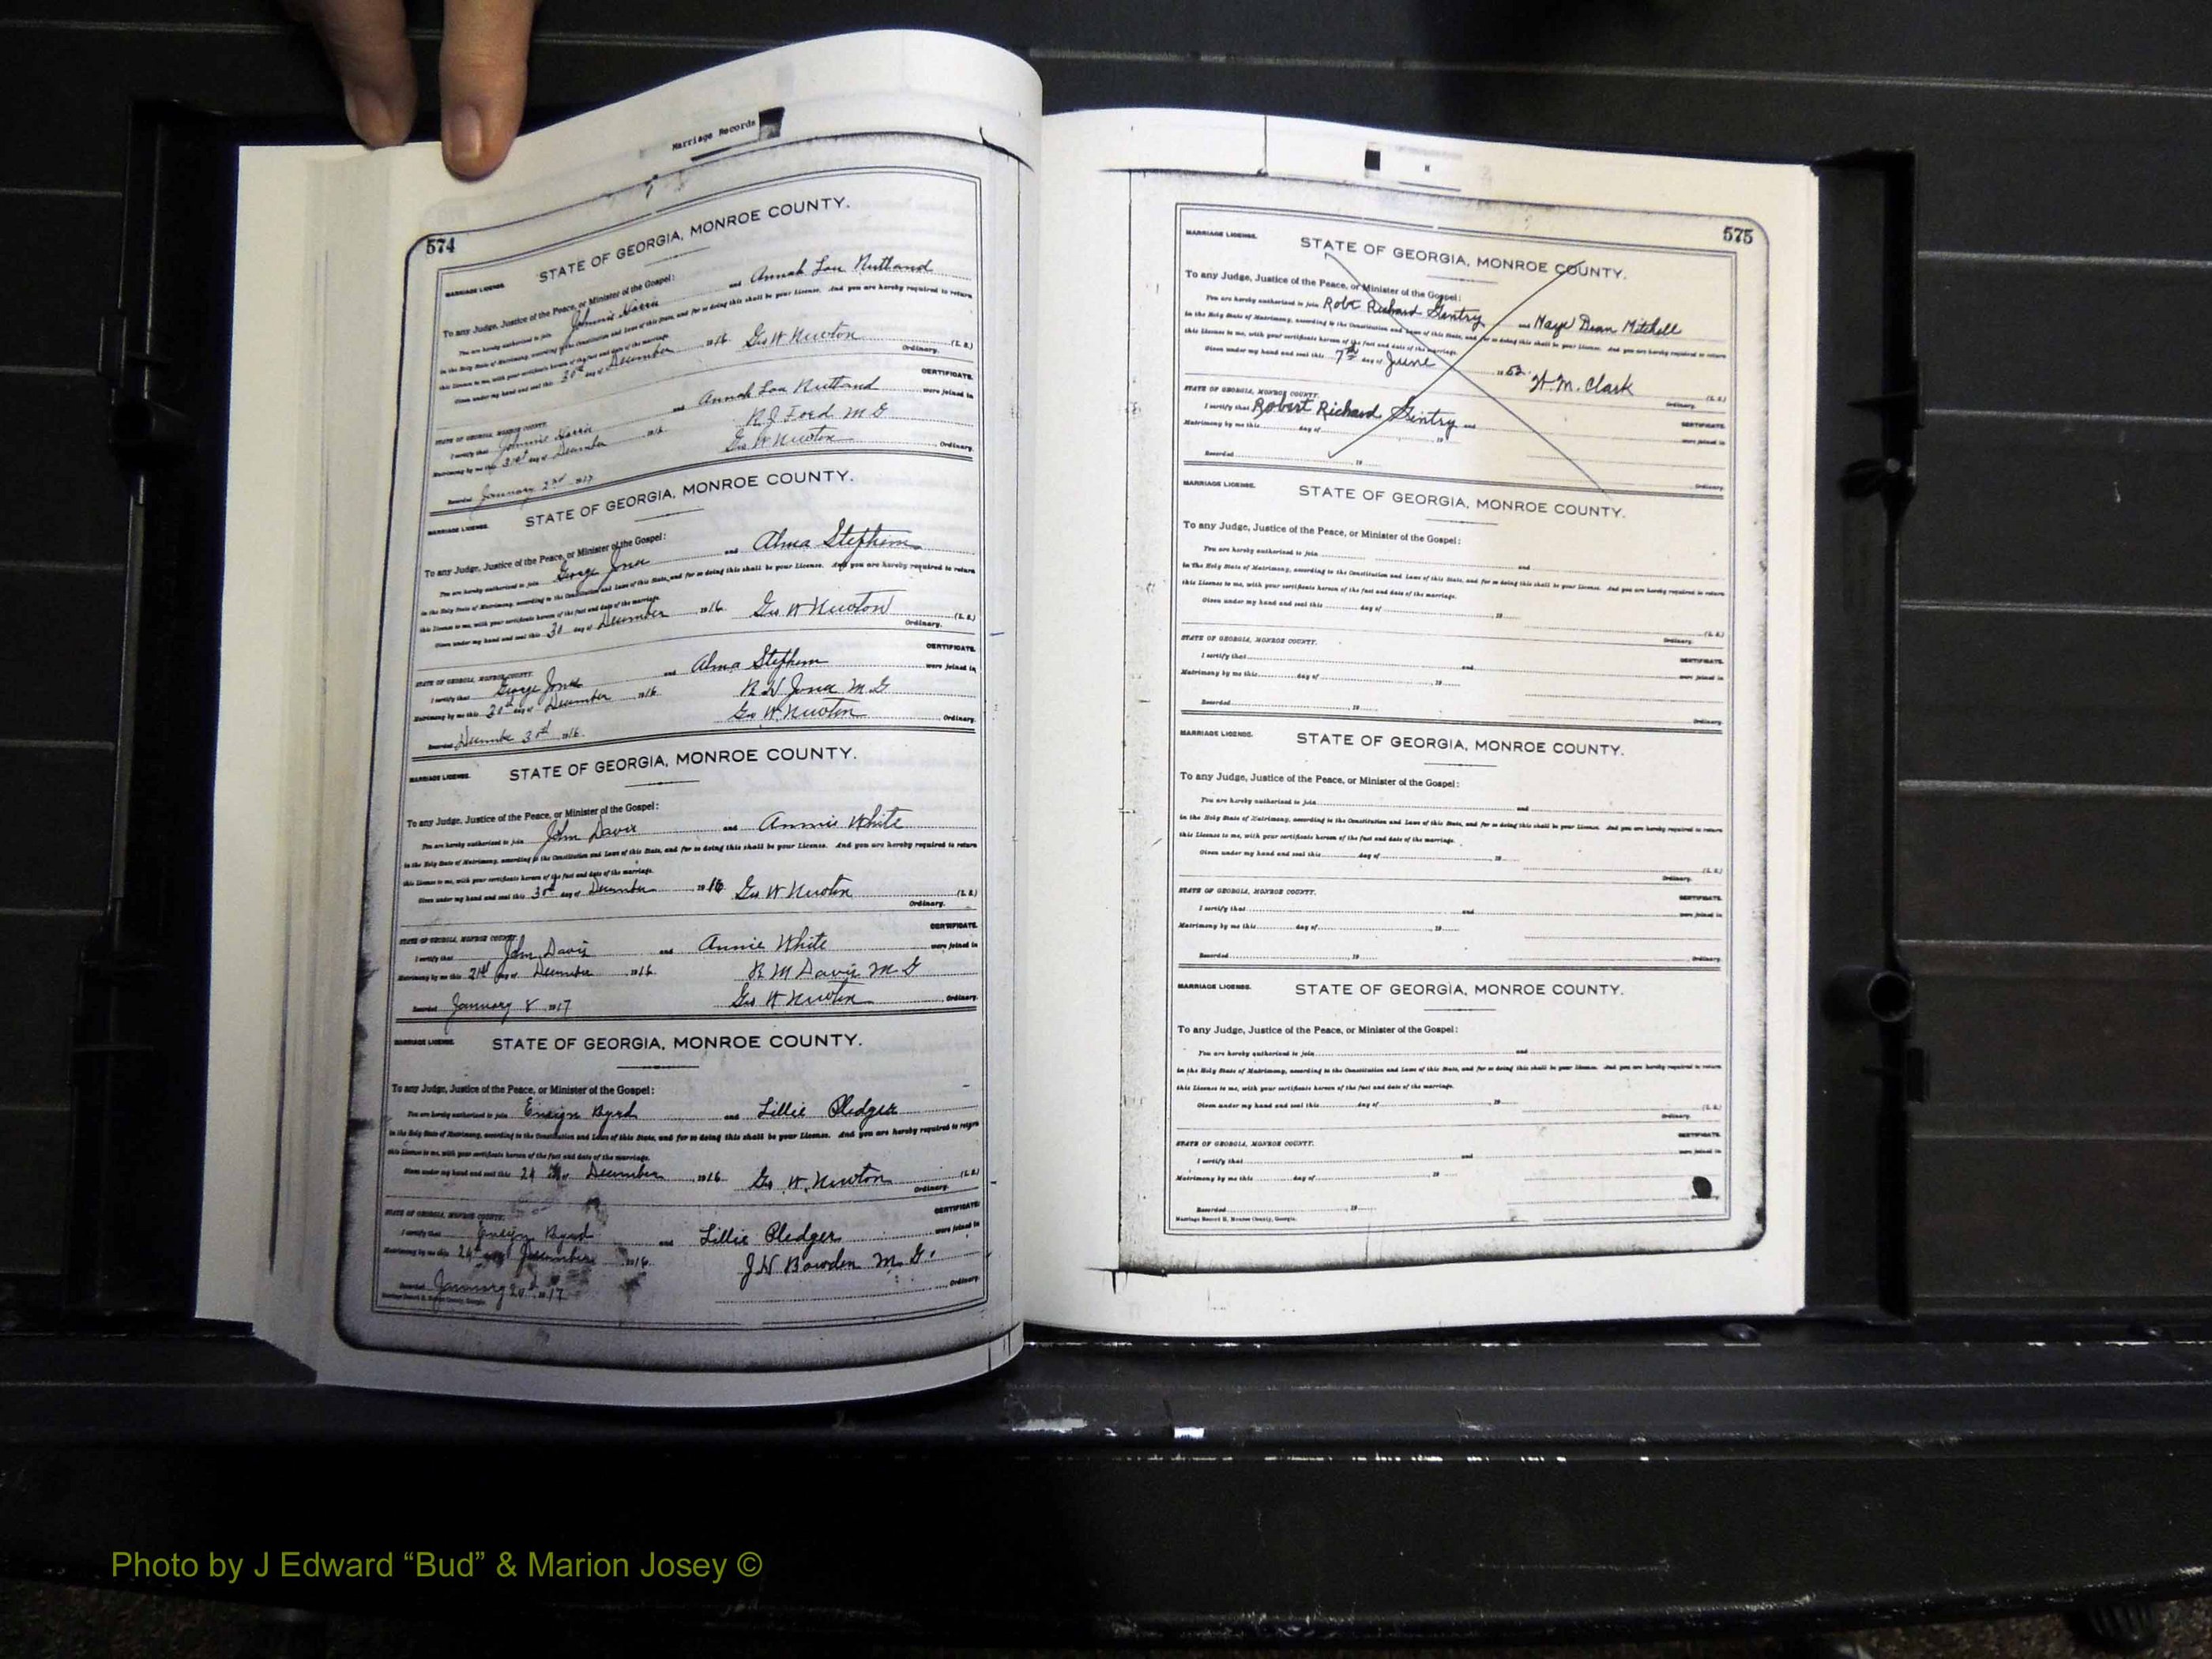 Marriage Records
574
STATE OF GEORGIA, MONROE COUNTY.
MARRIAGE LICENSE.
To any Judge, Justice of the Peace, or Minister of the Gospel:
You are hereby authorized to join Johnnie Harris and Annah Lou Nutland
in the Holy State of Matrimony, according to the Constitution and Laws of this State, and for so doing this shall be your License. And you are hereby required to return
this License to me, with your certificate hereon of the fact and date of the marriage.
Given under my hand and seal this 30th day of December 1916. Geo W Newton (L. S.)
Ordinary.
STATE OF GEORGIA, MONROE COUNTY. CERTIFICATE.
I certify that Johnnie Harris and Annah Lou Nutland were joined in
Matrimony by me this 31st day of December 1916. R. J. Ford M G
Recorded January 2nd 1917 Geo W Newton Ordinary.
MARRIAGE LICENSE. STATE OF GEORGIA, MONROE COUNTY.
To any Judge, Justice of the Peace, or Minister of the Gospel:
You are hereby authorized to join George Jones and Alma Stephens
in the Holy State of Matrimony, according to the Constitution and Laws of this State, and for so doing this shall be your License. And you are hereby required to return
this License to me, with your certificate hereon of the fact and date of the marriage.
Given under my hand and seal this 30 day of December 1916. Geo W Newton (L. S.)
Ordinary.
STATE OF GEORGIA, MONROE COUNTY. CERTIFICATE.
I certify that George Jones and Alma Stephens were joined in
Matrimony by me this 30th day of December 1916. R W Jones M G
Recorded December 30th 1916. Geo W Newton Ordinary.
MARRIAGE LICENSE. STATE OF GEORGIA, MONROE COUNTY.
To any Judge, Justice of the Peace, or Minister of the Gospel:
You are hereby authorized to join John Davis and Annie White
in the Holy State of Matrimony, according to the Constitution and Laws of this State, and for so doing this shall be your License. And you are hereby required to return
this License to me, with your certificate hereon of the fact and date of the marriage.
Given under my hand and seal this 30th day of December 1916. Geo W Newton (L. S.)
Ordinary.
STATE OF GEORGIA, MONROE COUNTY. CERTIFICATE.
I certify that John Davis and Annie White were joined in
Matrimony by me this 31st day of December 1916. R M Davis M G
Recorded January 8 1917 Geo W Newton Ordinary.
MARRIAGE LICENSE. STATE OF GEORGIA, MONROE COUNTY.
To any Judge, Justice of the Peace, or Minister of the Gospel:
You are hereby authorized to join Ensign Byrd and Lillie Pledger
in the Holy State of Matrimony, according to the Constitution and Laws of this State, and for so doing this shall be your License. And you are hereby required to return
this License to me, with your certificate hereon of the fact and date of the marriage.
Given under my hand and seal this 24 day of December 1916. Geo. W. Newton (L. S.)
Ordinary.
STATE OF GEORGIA, MONROE COUNTY. CERTIFICATE.
I certify that Ensign Byrd and Lillie Pledger were joined in
Matrimony by me this 24th day of December 1916. J W Bowden M. G.
Recorded January 1917 Ordinary.
Marriage Record H, Monroe County, Georgia.
575
MARRIAGE LICENSE. STATE OF GEORGIA, MONROE COUNTY.
To any Judge, Justice of the Peace, or Minister of the Gospel:
You are hereby authorized to join Robt Richard Gentry and Maye Dean Mitchell
in the Holy State of Matrimony, according to the Constitution and Laws of this State, and for so doing this shall be your License. And you are hereby required to return
this License to me, with your certificate hereon of the fact and date of the marriage.
Given under my hand and seal this 7th day of June 1952. H. M. Clark (L. S.)
Ordinary.
STATE OF GEORGIA, MONROE COUNTY. CERTIFICATE.
I certify that Robert Richard Gentry and were joined in
Matrimony by me this day of 19
Recorded 19 Ordinary.
MARRIAGE LICENSE. STATE OF GEORGIA, MONROE COUNTY.
To any Judge, Justice of the Peace, or Minister of the Gospel:
You are hereby authorized to join and
in the Holy State of Matrimony, according to the Constitution and Laws of this State, and for so doing this shall be your License. And you are hereby required to return
this License to me, with your certificate hereon of the fact and date of the marriage.
Given under my hand and seal this day of 19 (L. S.)
Ordinary.
STATE OF GEORGIA, MONROE COUNTY. CERTIFICATE.
I certify that and were joined in
Matrimony by me this day of , 19
Recorded , 19 Ordinary.
MARRIAGE LICENSE. STATE OF GEORGIA, MONROE COUNTY.
To any Judge, Justice of the Peace, or Minister of the Gospel:
You are hereby authorized to join and
in the Holy State of Matrimony, according to the Constitution and Laws of this State, and for so doing this shall be your License. And you are hereby required to return
this License to me, with your certificate hereon of the fact and date of the marriage.
Given under my hand and seal this day of , 19 (L. S.)
Ordinary.
STATE OF GEORGIA, MONROE COUNTY. CERTIFICATE.
I certify that and were joined in
Matrimony by me this day of , 19
Recorded , 19 Ordinary.
MARRIAGE LICENSE. STATE OF GEORGIA, MONROE COUNTY.
To any Judge, Justice of the Peace, or Minister of the Gospel:
You are hereby authorized to join and
in the Holy State of Matrimony, according to the Constitution and Laws of this State, and for so doing this shall be your License. And you are hereby required to return
this License to me, with your certificate hereon of the fact and date of the marriage.
Given under my hand and seal this day of , 19 (L. S.)
Ordinary.
STATE OF GEORGIA, MONROE COUNTY. CERTIFICATE.
I certify that and were joined in
Matrimony by me this day of , 19
Recorded , 19
Marriage Record H, Monroe County, Georgia.
Photo by J Edward “Bud” & Marion Josey ©